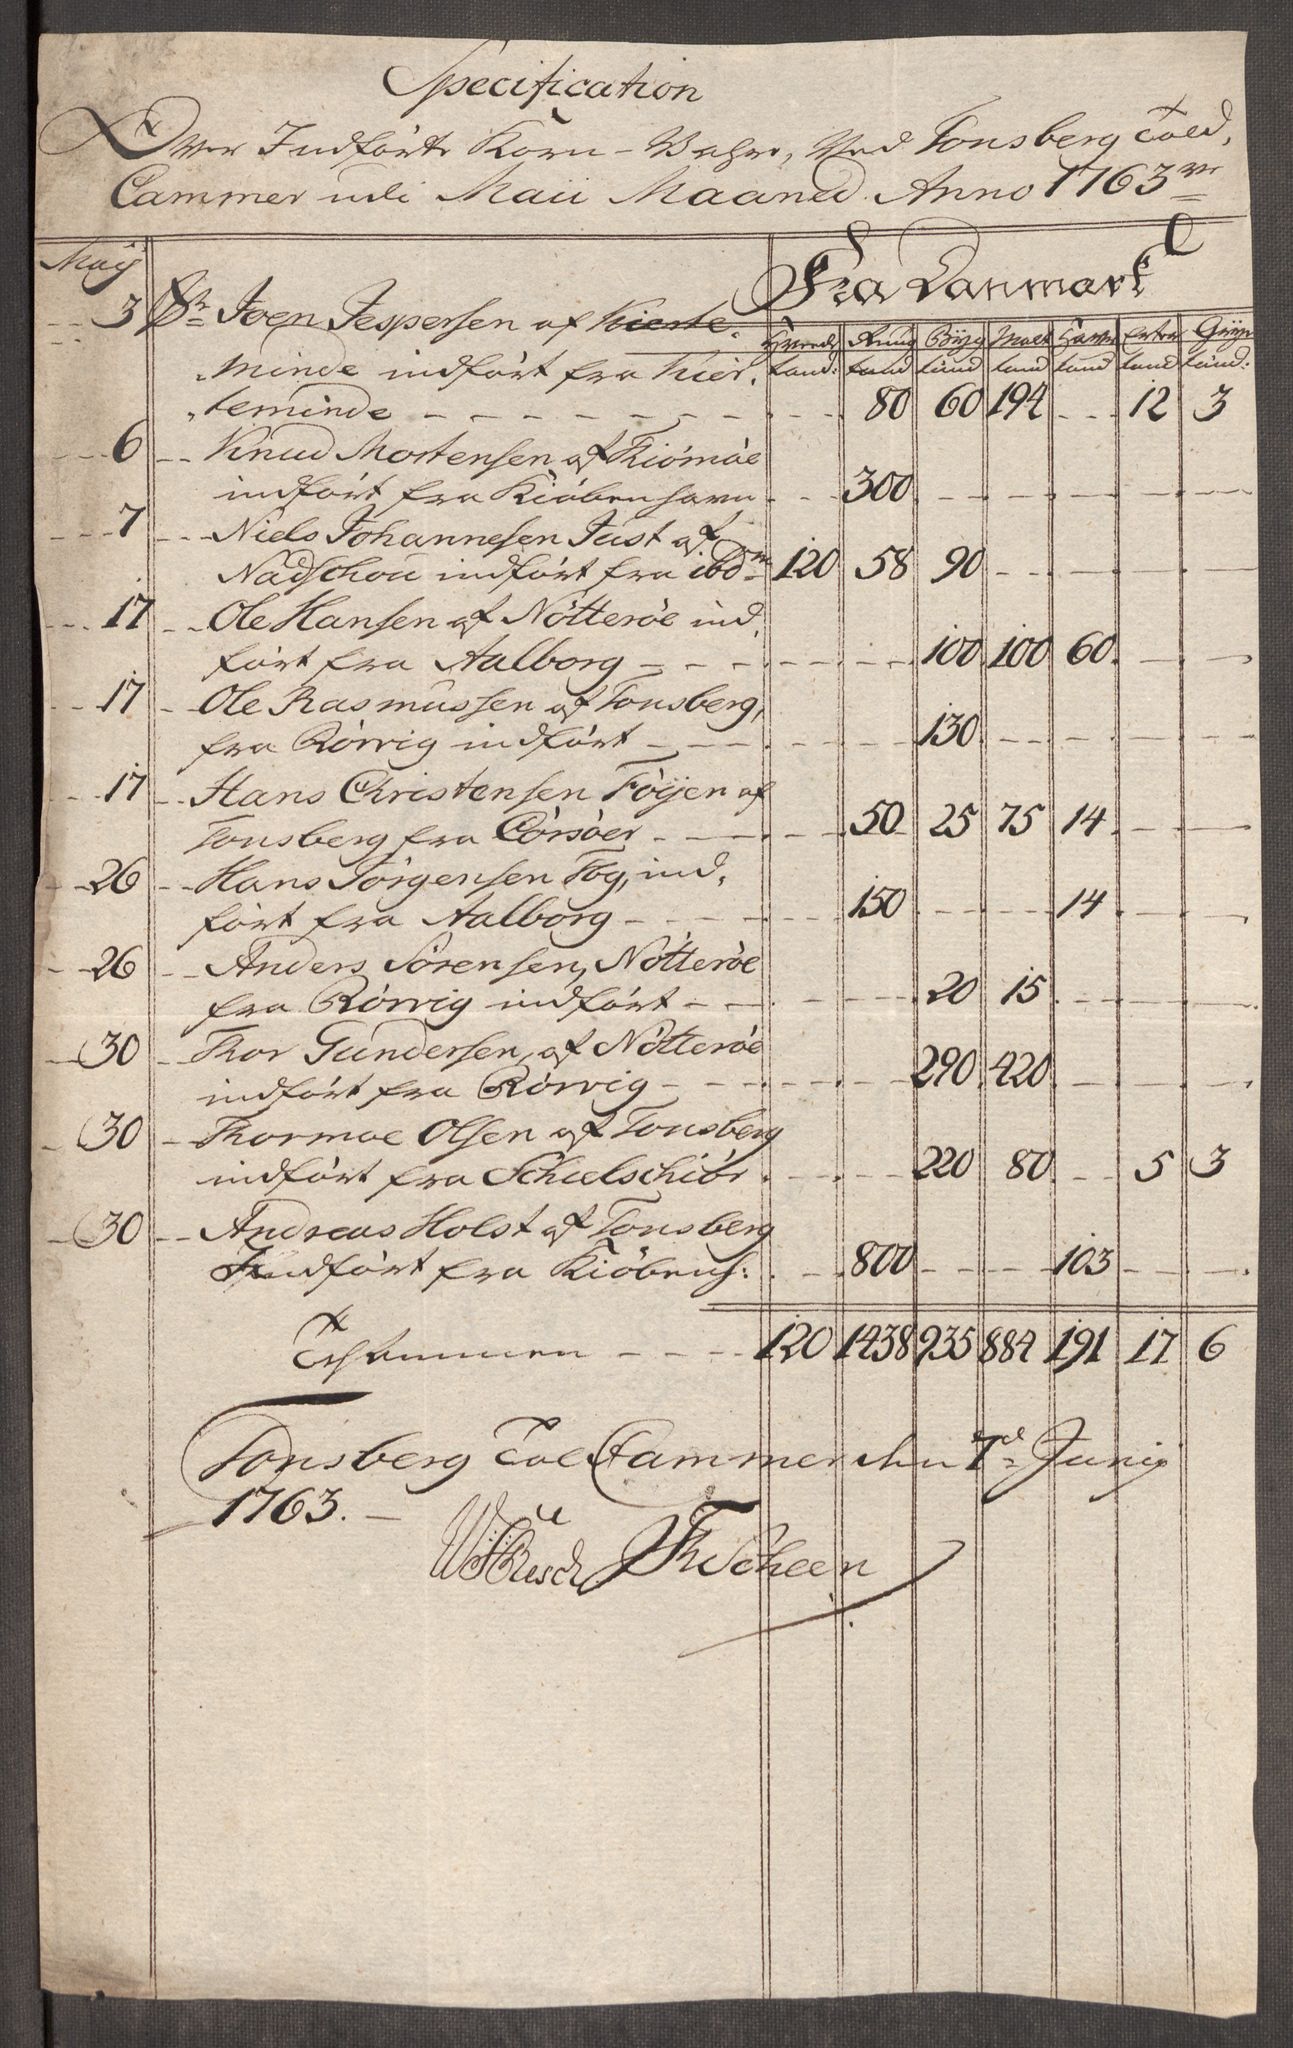 Specification
Over Indførte Korn-Vahre, Ved Tonsberg Told,
Cammer udi Maii Maaned Anno 1763
Maij Fra Danmark
3 Sr Joen Jespersen af Kierte- Hvede Rug Byg Malt Havre Erter Gryn
minde indført fra Kier, tønd: tønd tønd tønd tønd tønd tønd:
teminde - - - 80 60 194 - 12 3
6 Knud Mortensen af Kiömöe
indført fra Kiöbenhavn - 300 - - - - -
7 Niels Johannesen Just af
Nadschou indført fra ibdm 120 58 90 - - - -
17 Ole Hansen af Nötteröe ind,
ført fra Aalborg - - - 100 100 60 - -
17 Ole Rasmussen af Tonsberg,
fra Rörvig indført - - - 130 - - - -
17 Hans Christensen Föyen af
Tonsberg fra Corsöer - - 50 25 75 14 - -
26 Hans Jörgensen Fog, ind,
ført fra Aalborg - - 150 - - 14 - -
26 Anders Sörensen, Nötteröe
fra Rörvig indført - - - 20 15 - - -
30 Thor Gundersen, af Nötteröe
indført fra Rörvig - - - 290 420 - - -
30 Thormoe Olsen af Tonsberg
indført fra Schielschiör - - 220 80 - 5 3
30 Andreas Holst af Tonsberg
Indført fra Kiöbenh: - 800 - - 103 - -
Tilsammen - - - 120 1438 935 884 191 17 6
Tonsberg Told Cammer den 7d Junij
1763. -
Scheen